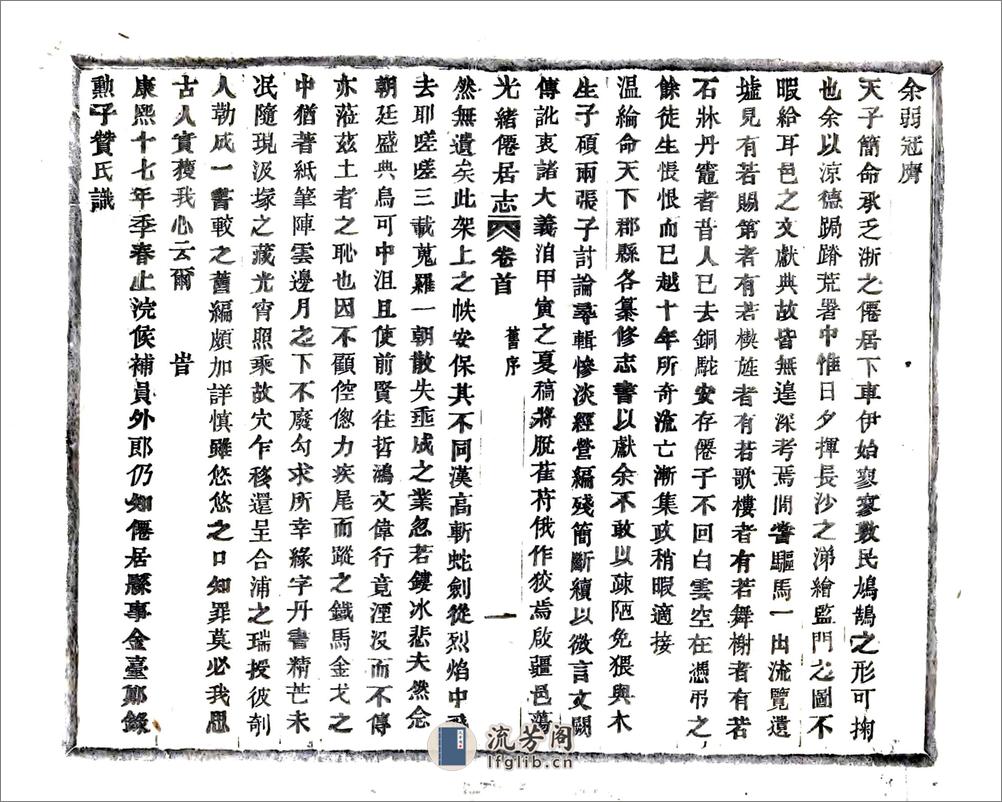 余弱冠膺
天子簡命承乏浙之僊居下車伊始寥寥數民鳩鵠之形可掬
也余以涼德跼蹐荒署中惟日夕揮長沙之涕繪監門之圖不
暇給耳邑之文獻典故皆無遑深考焉間嘗驅馬一出流覽遺
墟見有若賜第者有若楔旌者有若歌樓者有若舞榭者有若
石牀丹竈者昔人已去銅駝安存僊子不回白雲空在憑弔之
餘徒生悵恨而已越十年所奇流亡漸集政稍暇適接
溫綸命天下郡縣各纂修志書以獻余不敢以疎陋免猥與木
生子碩兩張子討論尋輯慘淡經營編殘簡斷續以微言文闕
傳訛衷諸大義洎甲寅之夏稿將脫萑苻俄作狡焉啟疆邑蕩
光緒僊居志 卷首 舊序 一
然無遺矣此架上之帙安保其不同漢高斬蛇劍從烈焰中飛
去耶嗟嗟三載蒐羅一朝散失垂成之業忽若鏤冰悲夫然念
朝廷盛典烏可中沮且使前賢往哲鴻文偉行竟湮沒而不傳
亦蒞茲土者之恥也因不顧倥傯力疾尾而蹤之鐵馬金戈之
中猶著紙筆陣雲邊月之下不廢勾求所幸綠字丹書精芒未
泯隨現汲塚之藏光宵照乘故穴乍移還呈合浦之瑞授彼剞
人勒成一書較之舊編頗加詳慎雖悠悠之口知罪莫必我思
古人實獲我心云爾 旹
康熙十七年季春上浣候補員外郎仍知僊居縣事金臺鄭錄
勲子贊氏識
流芳阁
lfglib.cn